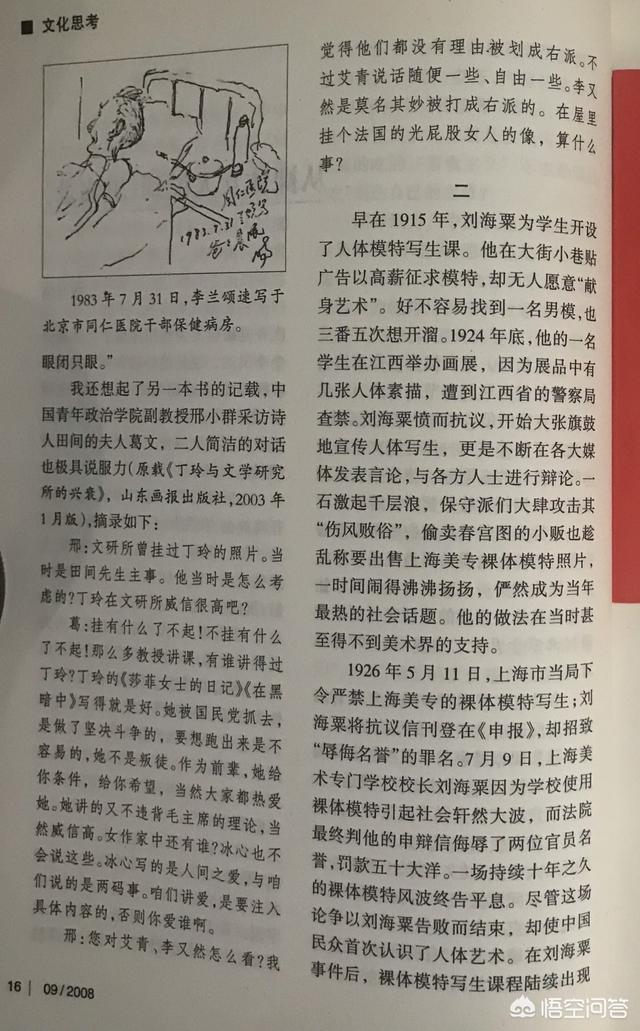 ■ 文化思考
同仁医院
1983.7.31
1983年7月31日,李兰颂速写于
北京市同仁医院干部保健病房。
眼闭只眼。”
我还想起了另一本书的记载,中
国青年政治学院副教授邢小群采访诗
人田间的夫人葛文,二人简洁的对话
也极具说服力(原载《丁玲与文学研究
所的兴衰》,山东画报出版社,2003年
1月版),摘录如下:
邢:文研所曾挂过丁玲的照片。当
时是田间先生主事。他当时是怎么考
虑的?丁玲在文研所威信很高吧?
葛:挂有什么了不起!不挂有什么
了不起!那么多教授讲课,有谁讲得过
丁玲?丁玲的《莎菲女士的日记》《在黑
暗中》写得就是好。她被国民党抓去,
是做了坚决斗争的,要想跑出来是不
容易的,她不是叛徒。作为前辈,她给
你条件,给你希望,当然大家都热爱
她。她讲的又不违背毛主席的理论,当
然威信高。女作家中还有谁?冰心也不
会说这些。冰心写的是人间之爱,与咱
们说的是两码事。咱们讲爱,是要注入
具体内容的,否则你爱谁啊。
邢:您对艾青、李又然怎么看?我
觉得他们都没有理由被划成右派。不
过艾青说话随便一些、自由一些。李又
然是莫名其妙被打成右派的。在屋里
挂个法国的光屁股女人的像,算什么
事?
二
早在1915年,刘海粟为学生开设
了人体模特写生课。他在大街小巷贴
广告以高薪征求模特,却无人愿意“献
身艺术”。好不容易找到一名男模,也
三番五次想开溜。1924年底,他的一名
学生在江西举办画展,因为展品中有
几张人体素描,遭到江西省的警察局
查禁。刘海粟愤而抗议,开始大张旗鼓
地宣传人体写生,更是不断在各大媒
体发表言论,与各方人士进行辩论。一
石激起千层浪,保守派们大肆攻击其
“伤风败俗”,偷卖春宫图的小贩也趁
乱称要出售上海美专裸体模特照片,
一时间闹得沸沸扬扬,俨然成为当年
最热的社会话题。他的做法在当时甚
至得不到美术界的支持。
1926年5月11日,上海市当局下
令严禁上海美专的裸体模特写生;刘
海粟将抗议信刊登在《申报》,却招致
“辱侮名誉”的罪名。7月9日,上海美
术专门学校校长刘海粟因为学校使用
裸体模特引起社会轩然大波,而法院
最终判他的申辩信侮辱了两位官员名
誉,罚款五十大洋。一场持续十年之久
的裸体模特风波终告平息。尽管这场
论争以刘海粟告败而结束,却使中国
民众首次认识了人体艺术。在刘海粟
事件后,裸体模特写生课程陆续出现
16 | 09/2008
悟空问答